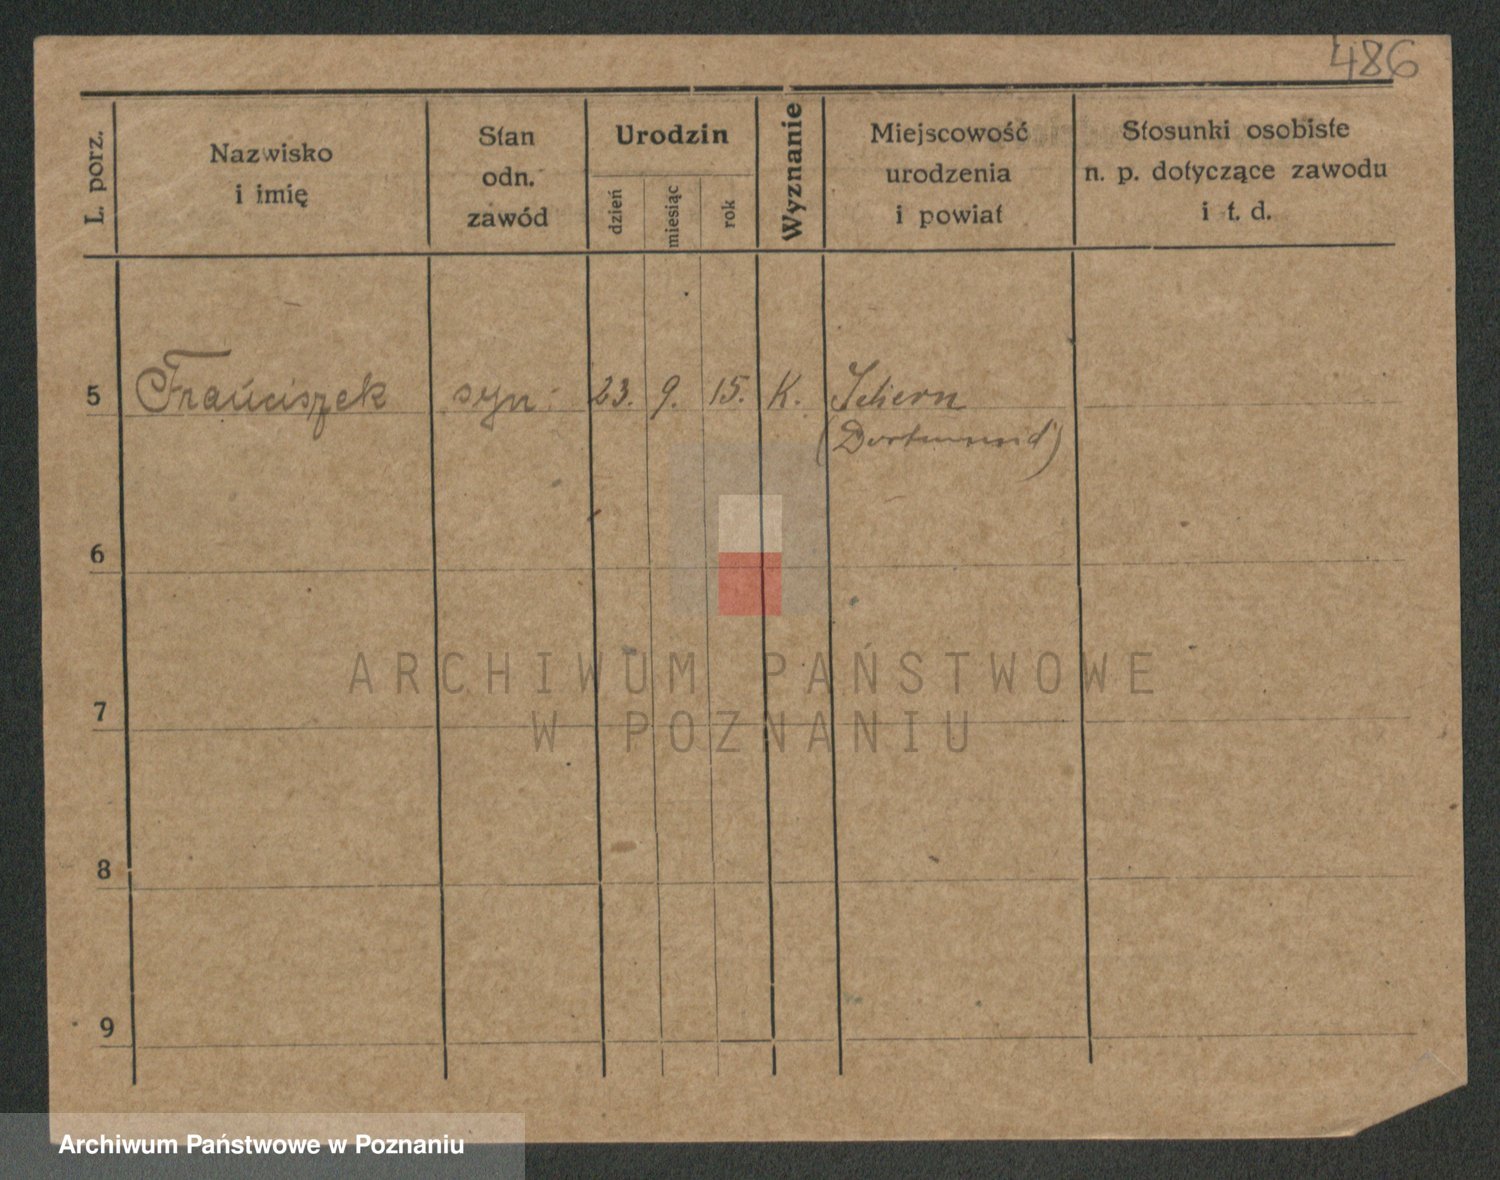 486
L. porz.
Nazwisko
i imię
Stan
odn.
zawód
Urodzin
dzień
miesiąc
rok
Wyznanie
Miejscowość
urodzenia
i powiat
Stosunki osobiste
n. p. dotyczące zawodu
i t. d.
5 Franciszek syn 23. 9. 15. K.
(Dortmund)
6
7
8
9
ARCHIWUM PAŃSTWOWE
W POZNANIU
Archiwum Państwowe w Poznaniu